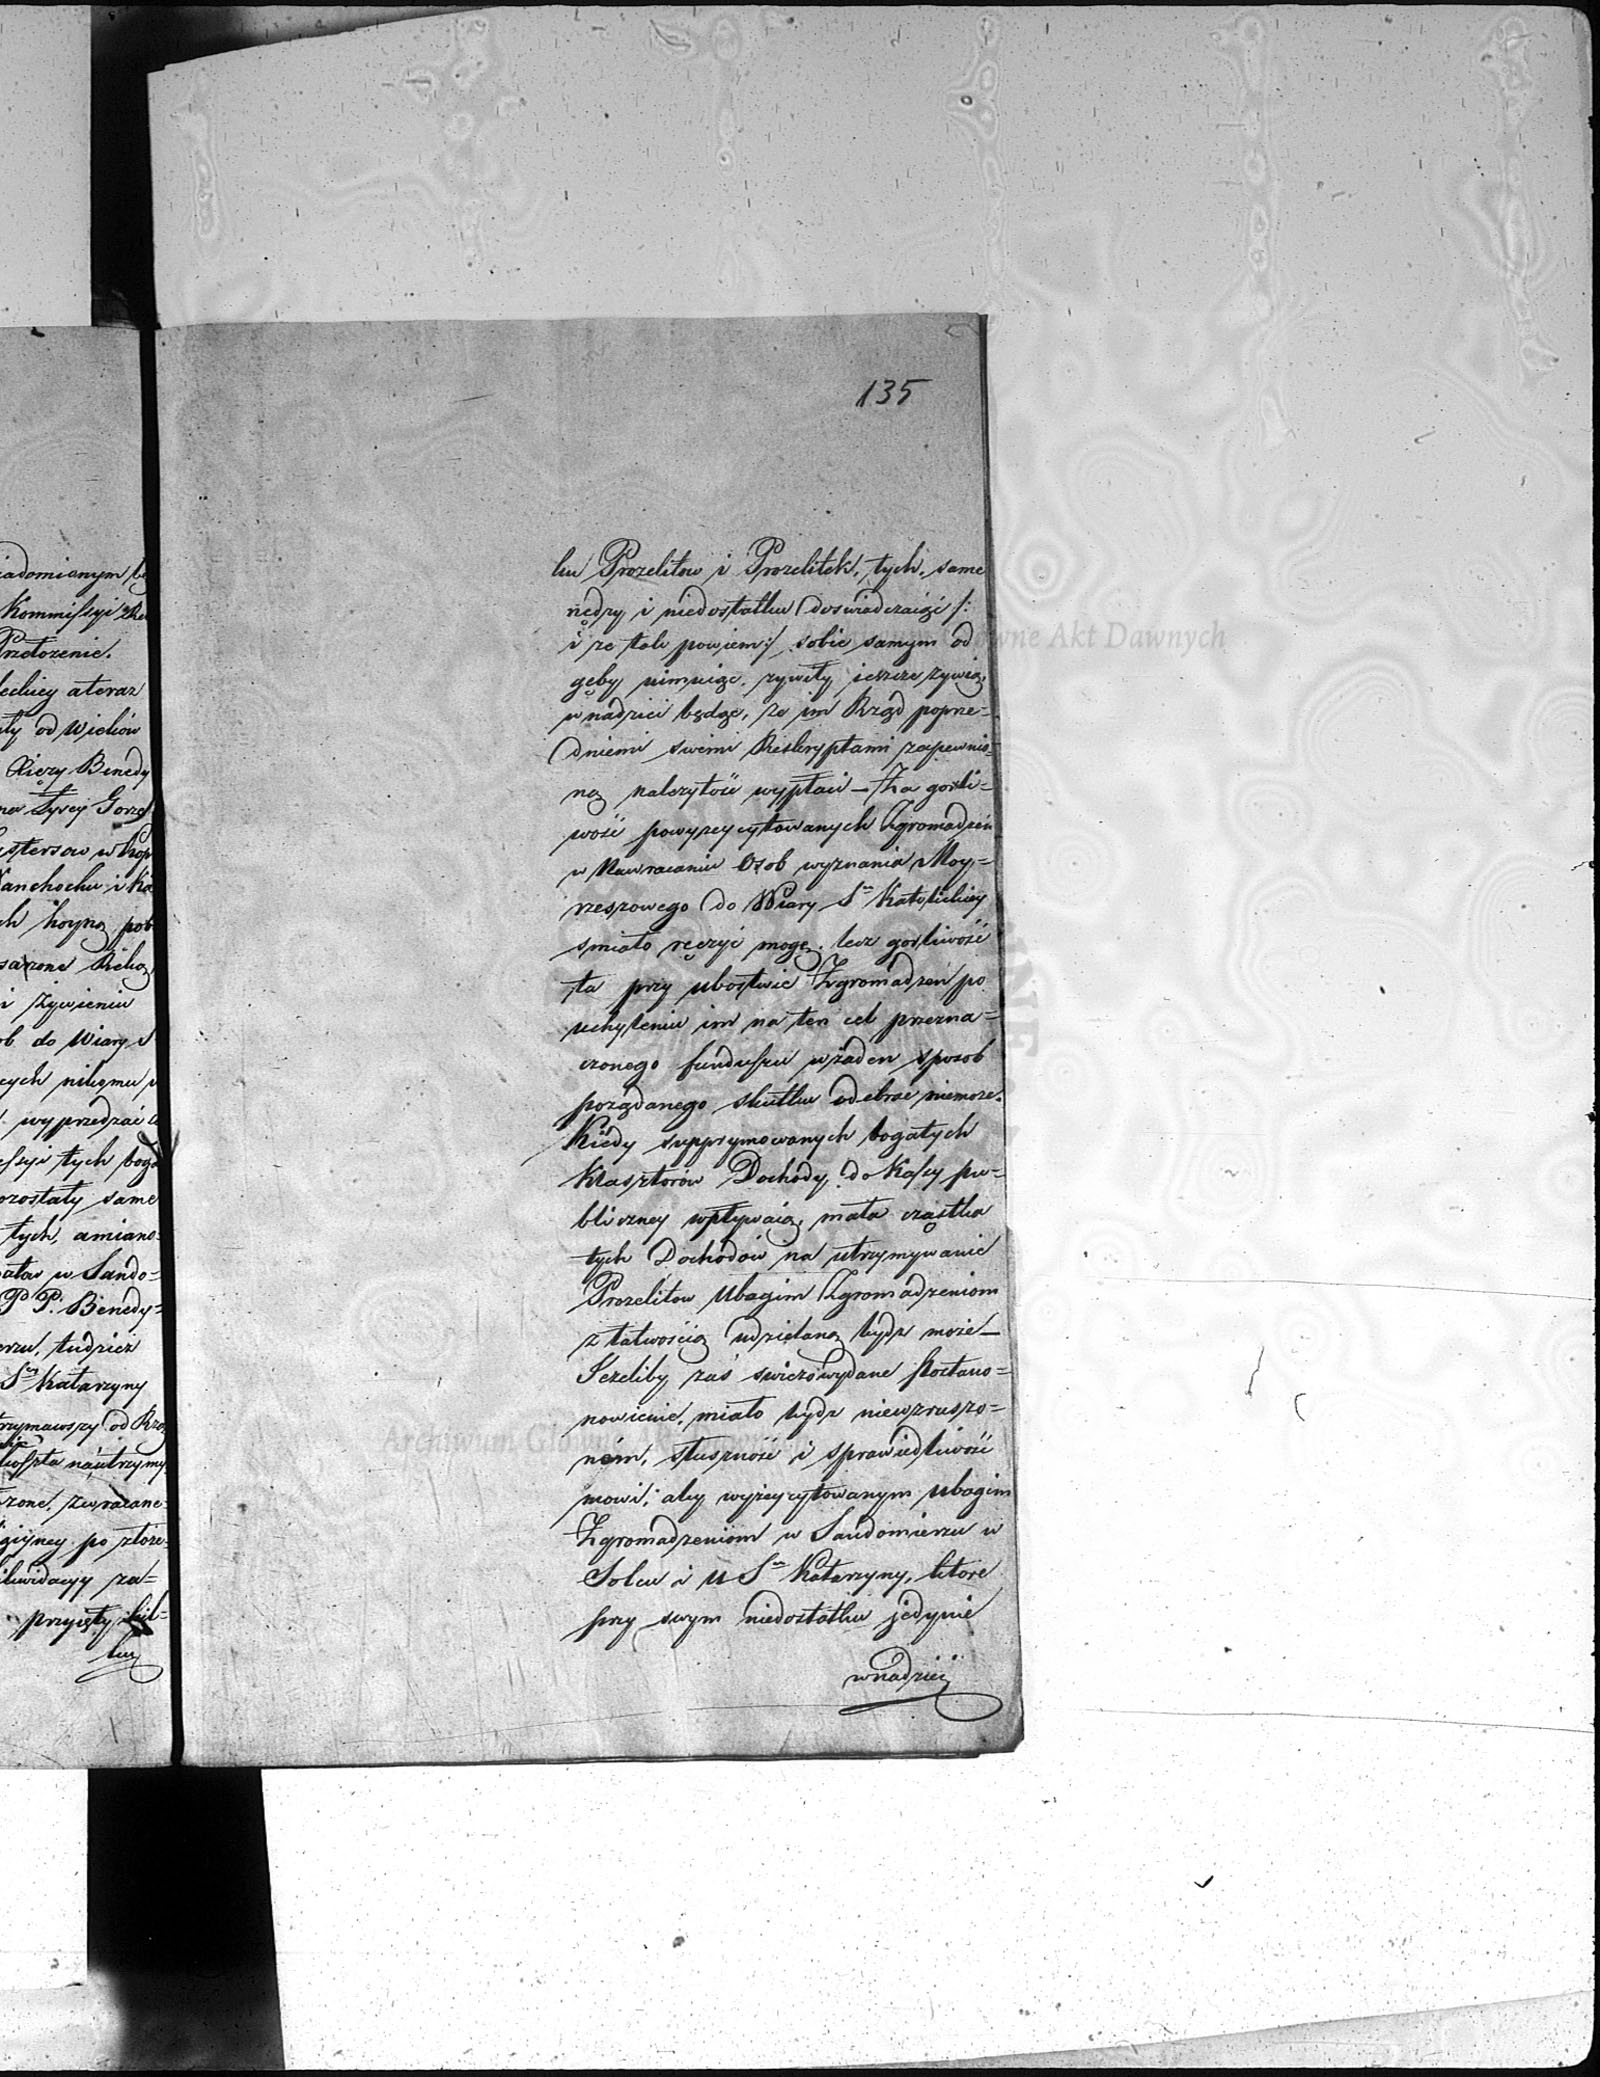 iadomionym bę
Kommissyi Rz
Przełożenie.
leckiey a teraz
ały od Wieków
Xięży Benedy
na Łysey Gorze
ystersow w Kop
Wanchocku i Ko
ch hoyną pob
sarzone Ręką
i żywieniu
ob do Wiary S
cych nikomu
wyprzedzać
essyi tych boga
ozostały same
tych, a miano=
atow w Sando=
P P. Benedy=
erzu, tudzież
Sᵗⁱ Katarzyny
trzymawszy od Rzą
koszta na utrzymy
zone, zwracane
giyney po złoże=
Likwidacyy za=
przyięty kil=
ku
135
ku Prozelitow i Prozelitek, tych, same
nędzy i niedostatku doswiadczaiąc /:
i że tak powiem :/ sobie samym od
gęby uimuiąc, żywiły ieszcze żywią,
w nadziei będąc, że im Rząd poprze=
dniemi swemi Reskryptami zapewnio=
ną należytość wypłaci — Za gorli=
wość powyżey cytowanych Zgromadzeń
w Nawracaniu Osob wyznania Moy=
zeszowego do Wiary Sⁿ Katolickiey
smiało ręczyć mogę. lecz gorliwość
ta przy ubostwie Zgromadzeń po
uchyleniu im na ten cel przezna=
czonego funduszu w żaden sposob
pożądanego skutku odebrać niemoże.
Kiedy supprymowanych bogatych
Klasztorów Dochody do Kassy pu=
bliczney wpływaią, mała cząstka
tych Dochodów na utrzymywanie
Prozelitow Ubogim Zgromadzeniom
z łatwością udzielaną bydź może —
Jeżeliby zaś swieżo wydane Postano=
nowienie, miało bydź niewzruszo=
ném, słuszność i sprawiedliwość
mowi, aby wyżey cytowanym ubogim
Zgromadzeniom w Sandomierzu w
Solcu i u Sⁿ Katarzyny, ktore
przy swym niedostatku jedynie
w nadziei
Archiwum Główne Akt Dawnych
Archiwum Główne Akt Dawnych